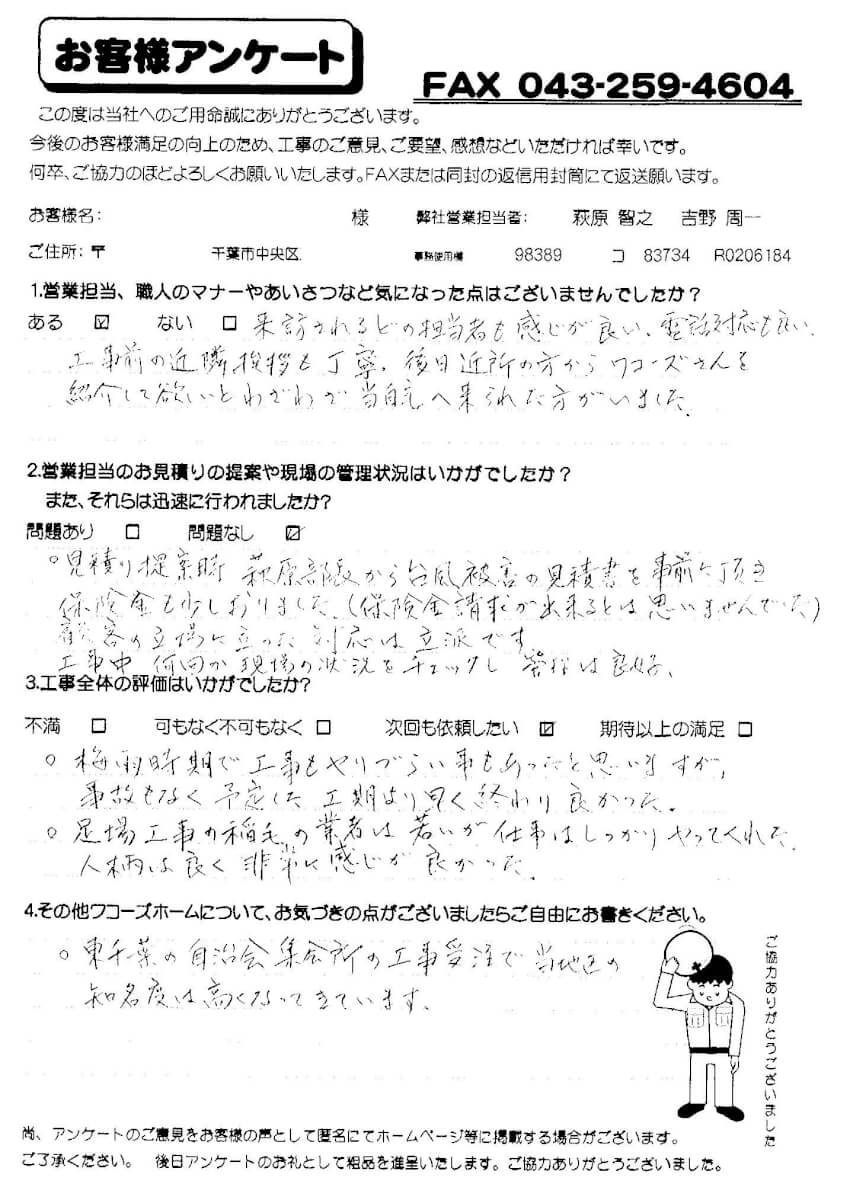 お客様アンケート
FAX 043-259-4604
この度は当社へのご用命誠にありがとうございます。
今後のお客様満足の向上のため、工事のご意見、ご要望、感想などいただければ幸いです。
何卒、ご協力のほどよろしくお願いいたします。FAXまたは同封の返信用封筒にて返送願います。
お客様名: 様 弊社営業担当者: 萩原 智之 吉野 周一
ご住所:〒 千葉市中央区 事務使用欄 98389 コ 83734 R0206184
1.営業担当、職人のマナーやあいさつなど気になった点はございませんでしたか?
ある ☑ ない □ 来訪されるどの担当者も感じが良い、電話対応も良い、
工事前の近隣挨拶も丁寧、後日近所の方からワコーズさんを
紹介して欲しいとわざわざ当自宅へ来られた方がいました。
2.営業担当のお見積りの提案や現場の管理状況はいかがでしたか?
また、それらは迅速に行われましたか?
問題あり □ 問題なし ☑
○見積り提案時 萩原部長から台風被害の見積書を事前に頂き
保険金も少しおりました。(保険金請求が出来るとは思いませんでした)
顧客の立場に立った対応は立派です
工事中 何回か現場の状況をチェックし 管理は良好、
3.工事全体の評価はいかがでしたか?
不満 □ 可もなく不可もなく □ 次回も依頼したい ☑ 期待以上の満足 □
○ 梅雨時期で工事もやりづらい事もあったと思いますが、
事故もなく予定した工期より早く終わり良かった。
○ 足場工事の稲毛の業者は若いが仕事はしっかりやってくれた。
人柄は良く非常に感じが良かった。
4.その他ワコーズホームについて、お気づきの点がございましたらご自由にお書きください。
○ 東千葉の自治会集会所の工事受注で当地区の
知名度は高くなってきています。
ご協力ありがとうございました
尚、アンケートのご意見をお客様の声として匿名にてホームページ等に掲載する場合がございます。
ご了承ください。 後日アンケートのお礼として粗品を進呈いたします。ご協力ありがとうございました。